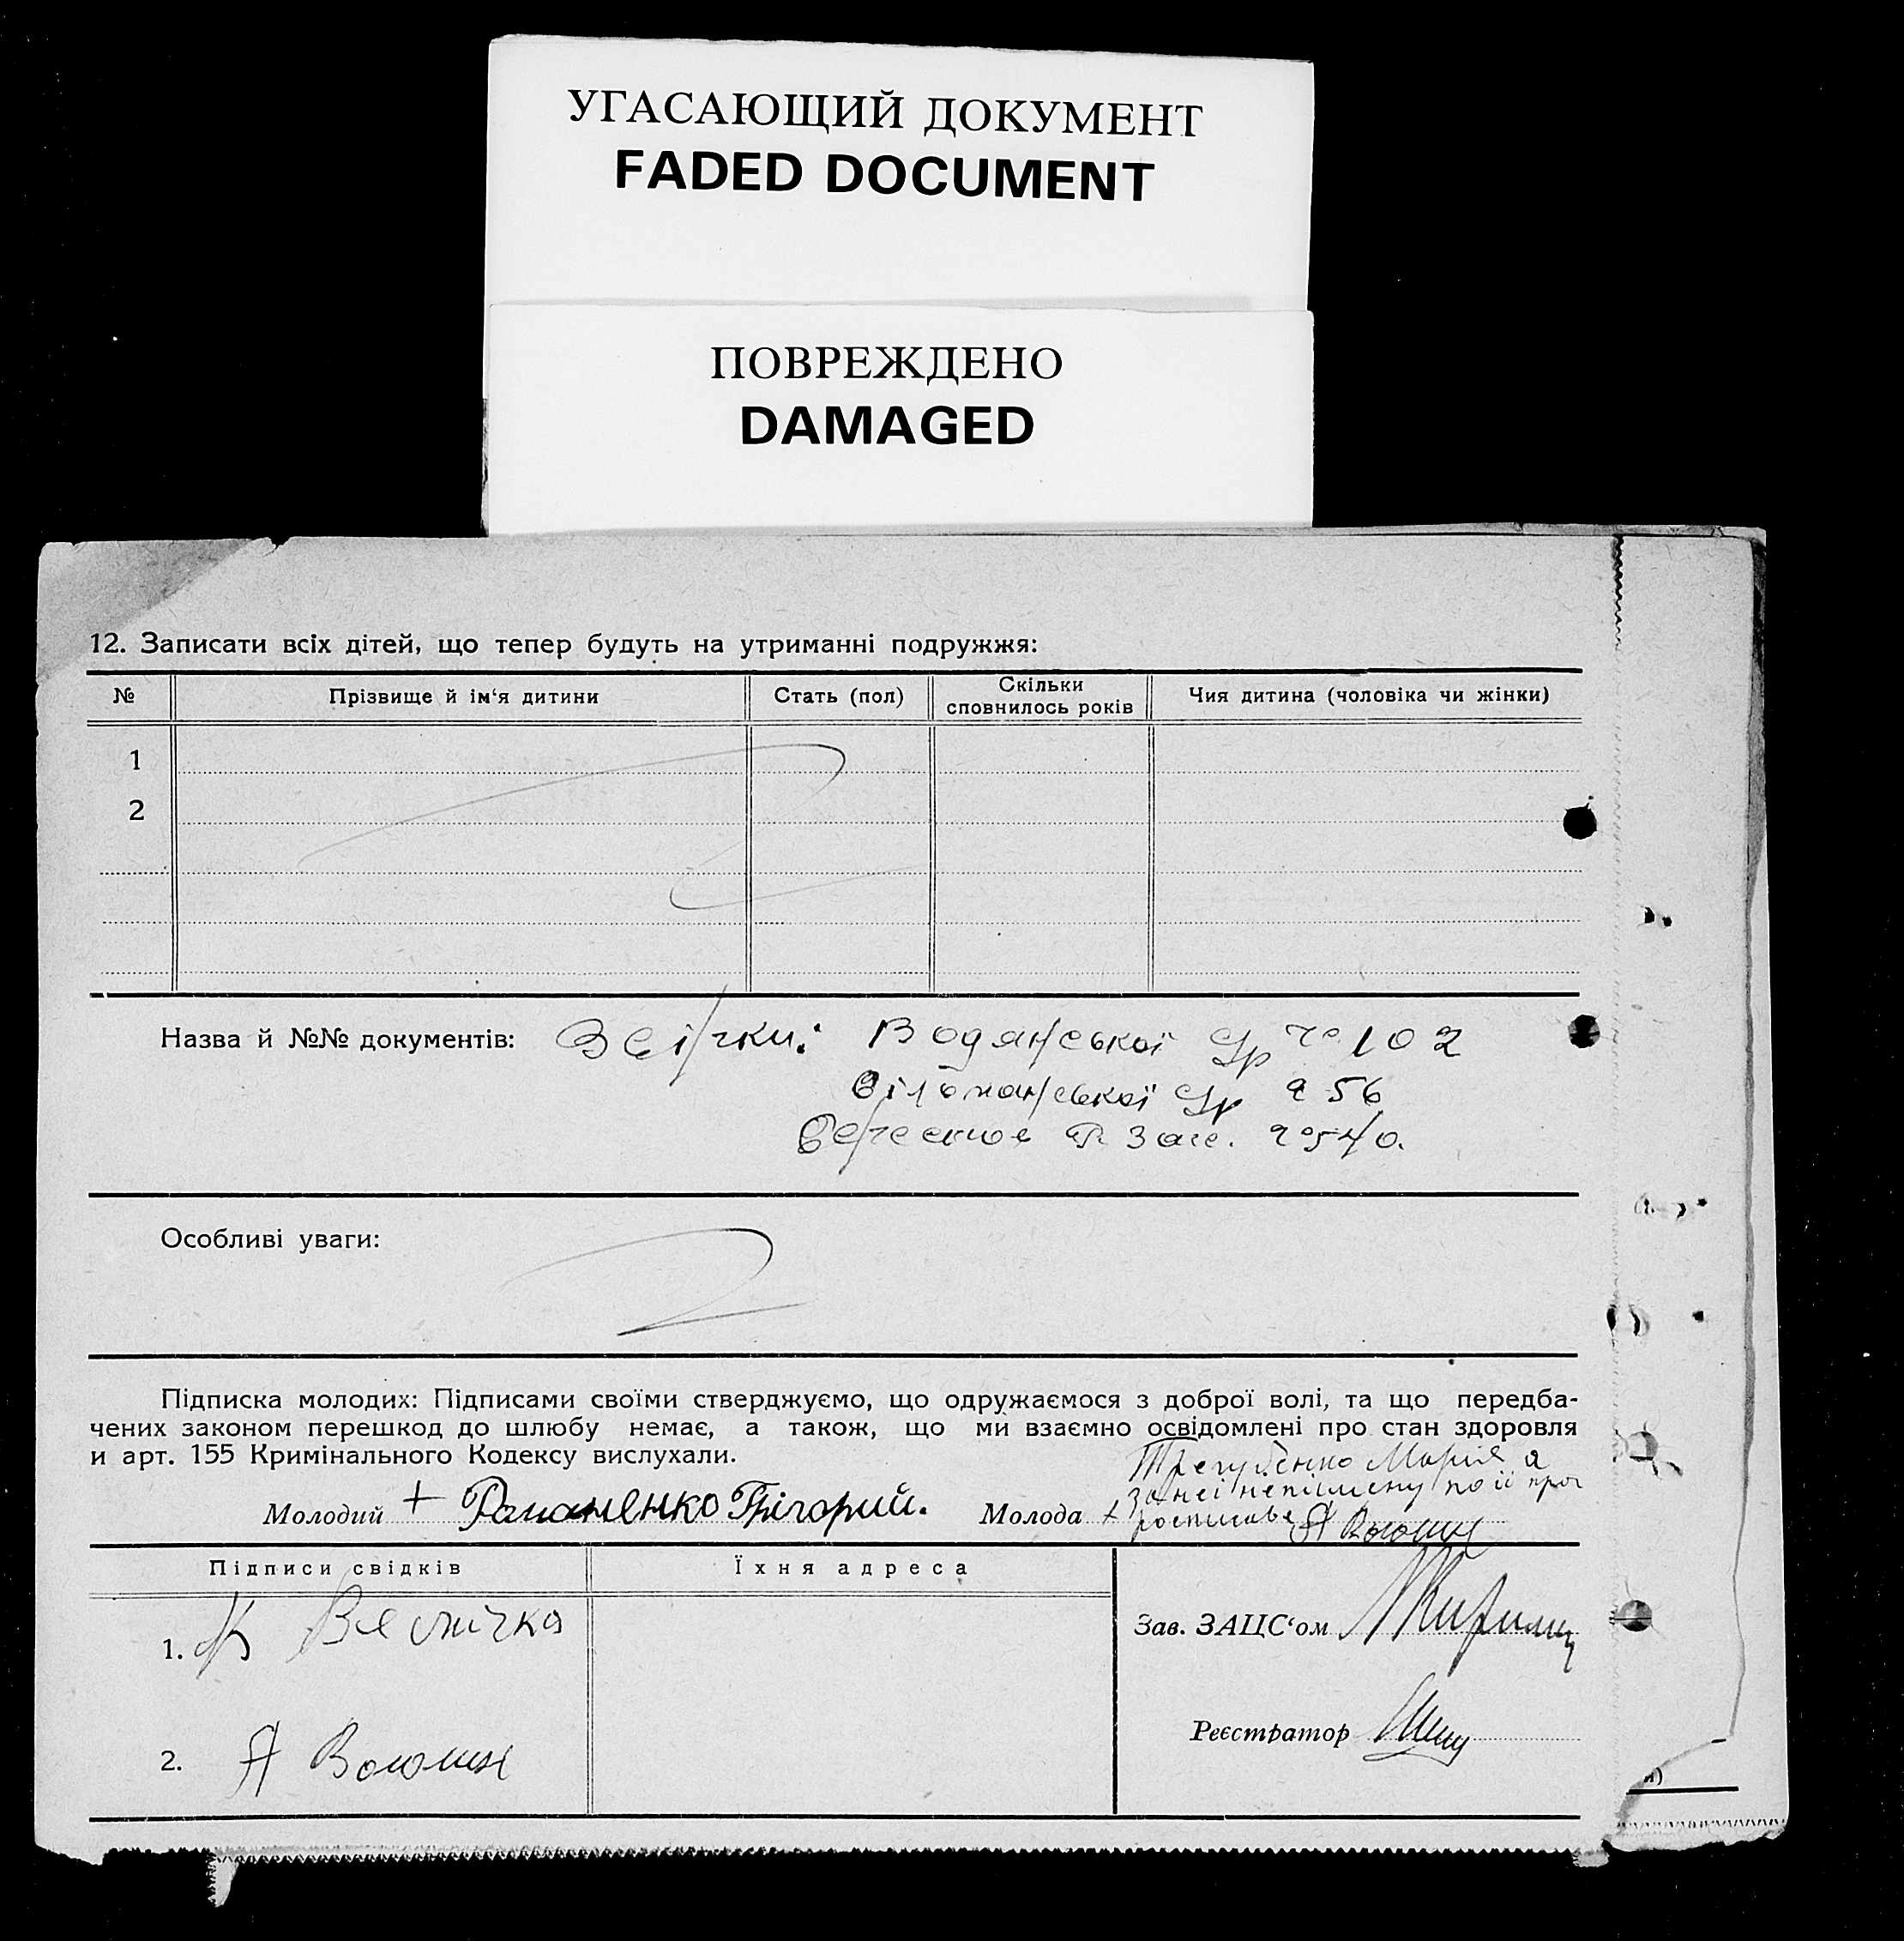 УГАСАЮЩИЙ ДОКУМЕНТ
FADED DOCUMENT
ПОВРЕЖДЕНО
DAMAGED
12. Записати всіх дітей, що тепер будуть на утриманні подружжя:
№ Прізвище й ім'я дитини Стать (пол) Скільки сповнилось років Чия дитина (чоловіка чи жінки)
1
2
Назва й №№ документів: Водянської 102
56
Особливі уваги:
Підписка молодих: Підписами своїми стверджуємо, що одружаємося з доброї волі, та що передба-
чених законом перешкод до шлюбу немає, а також, що ми взаємно освідомлені про стан здоровля
и арт. 155 Кримінального Кодексу вислухали.
Трегубенко Марія а
за неї неписмену по її
Молодий + Романенко Григорий. Молода + росписався Я
Підписи свідків Їхня адреса
1. К
Зав. ЗАЦС'ом
Реєстратор
2. Я